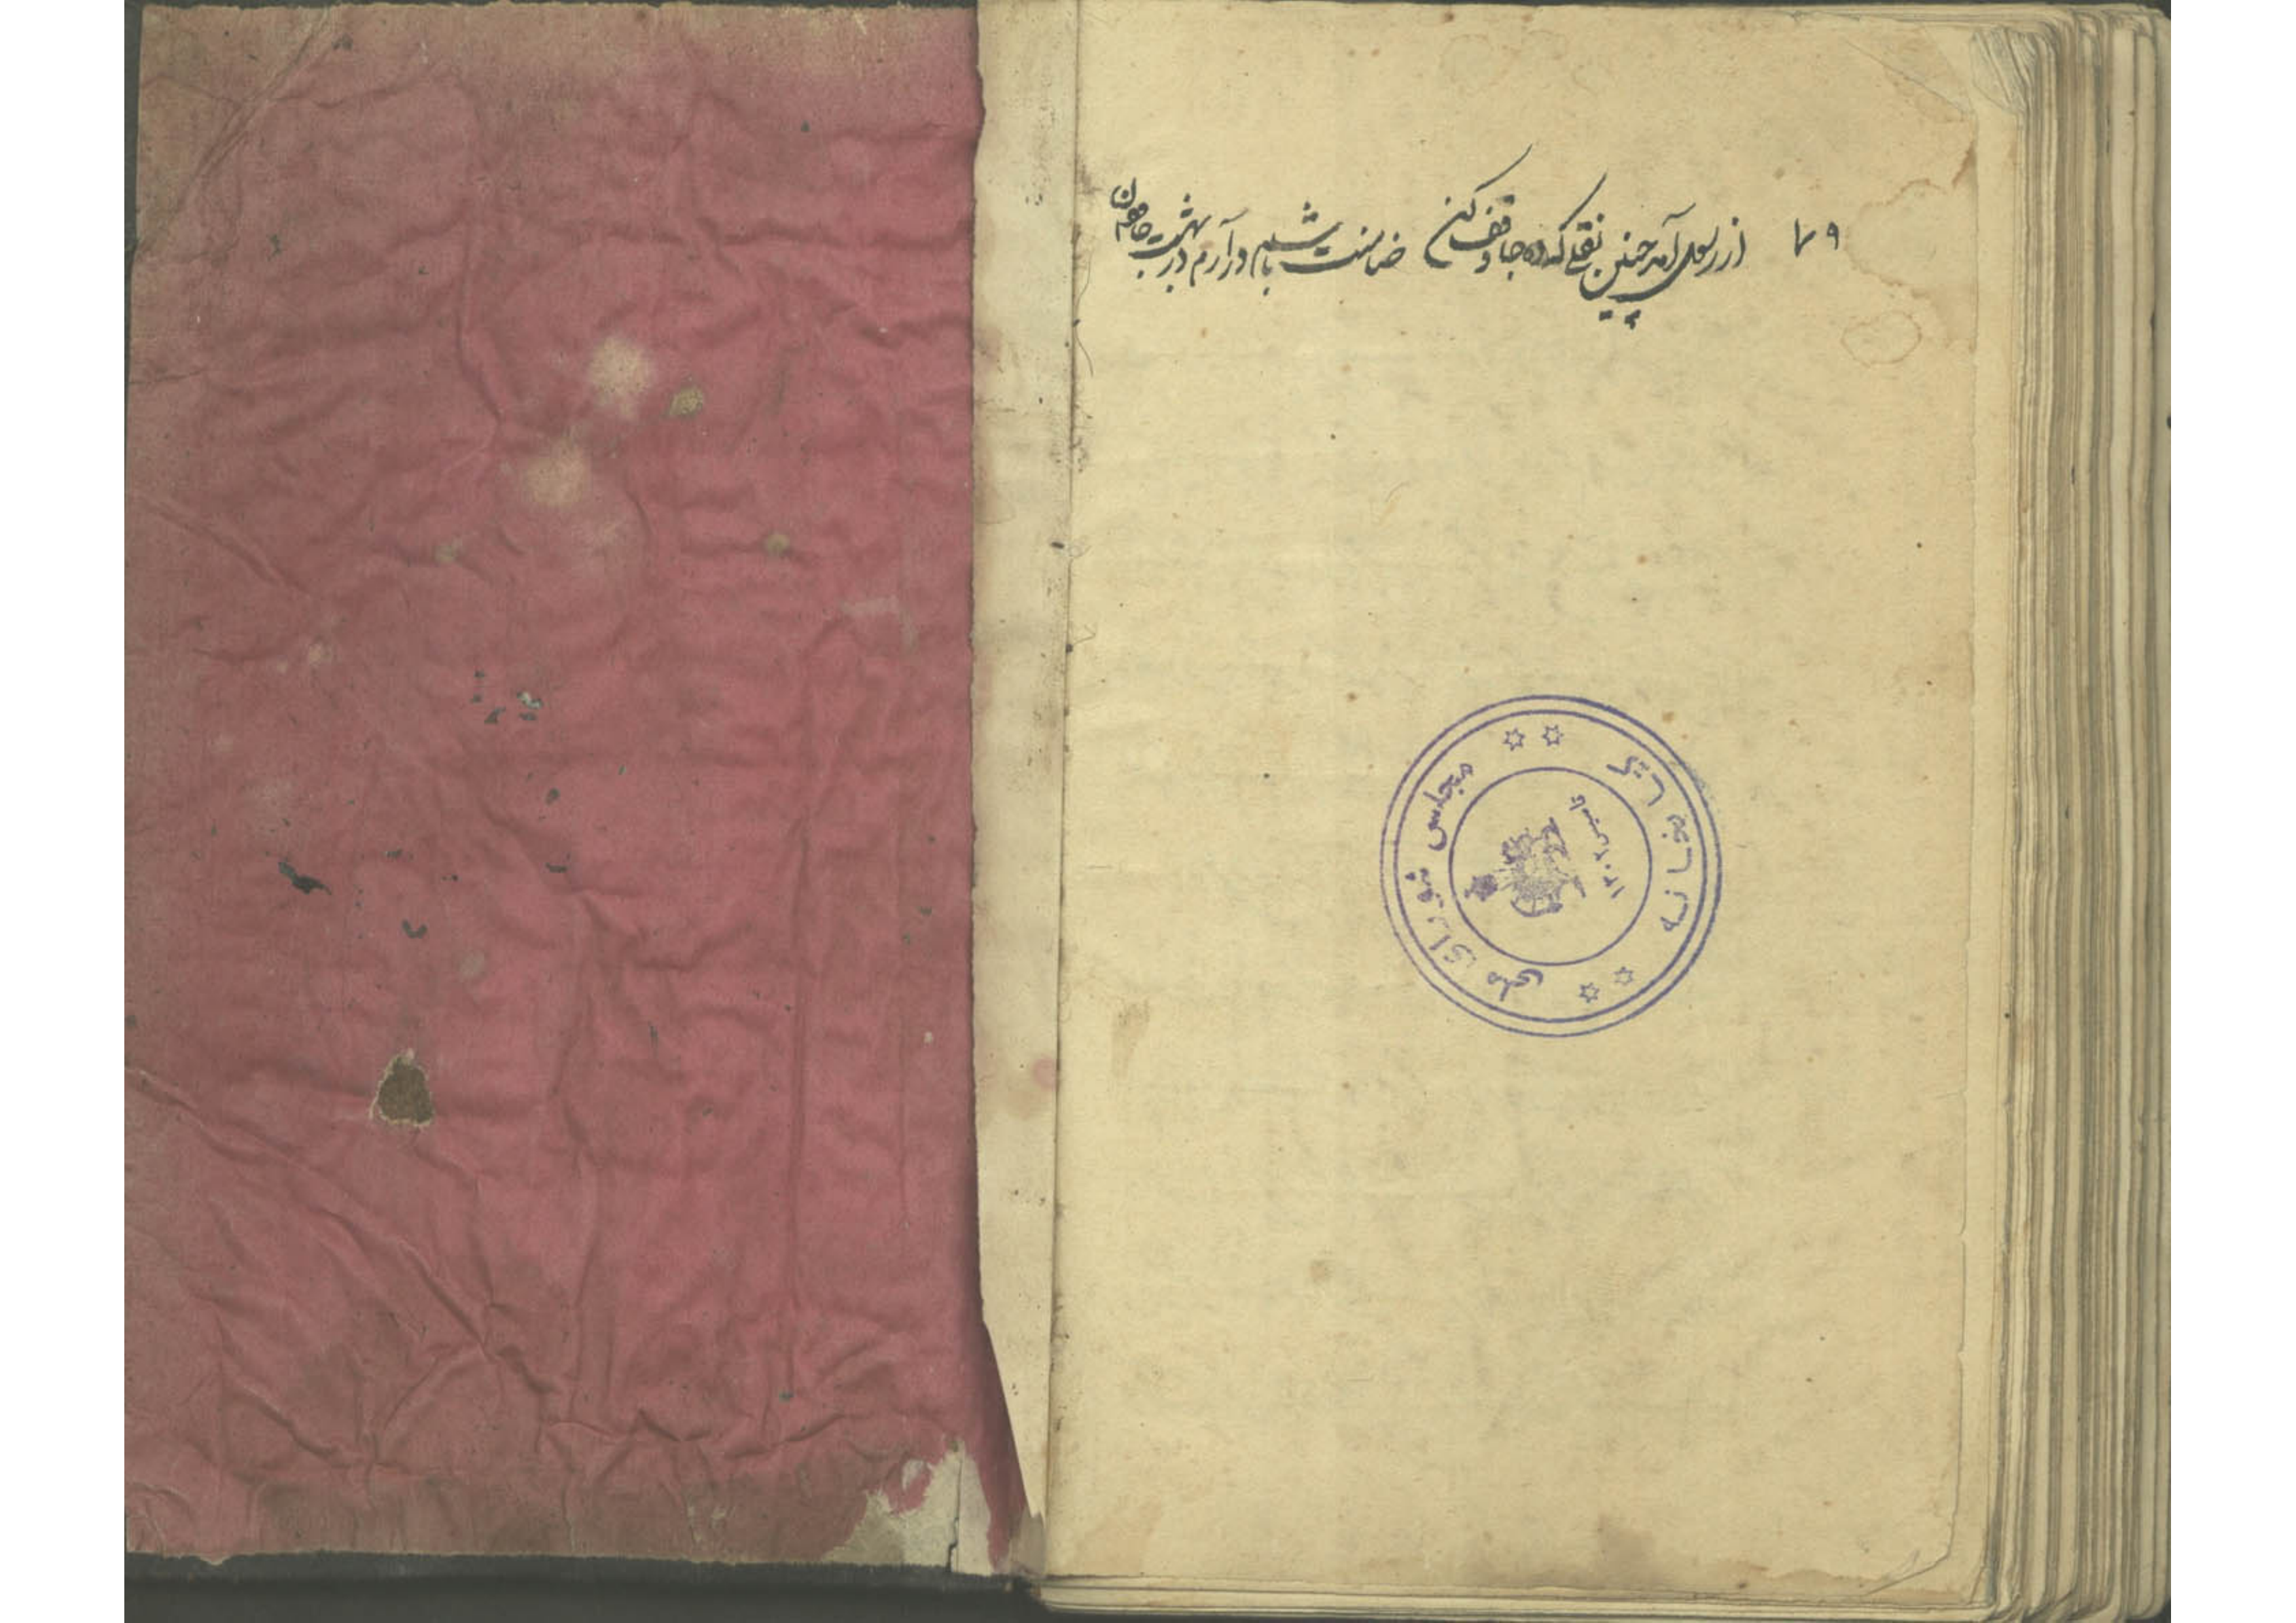 ۷۹ از رسول آمد چنین نقلی که ده جا وقف کن ضامنت باشم در آرم در بهشت
کتابخانه
مجلس شورای ملی
تاسیس ۱۳۰۲